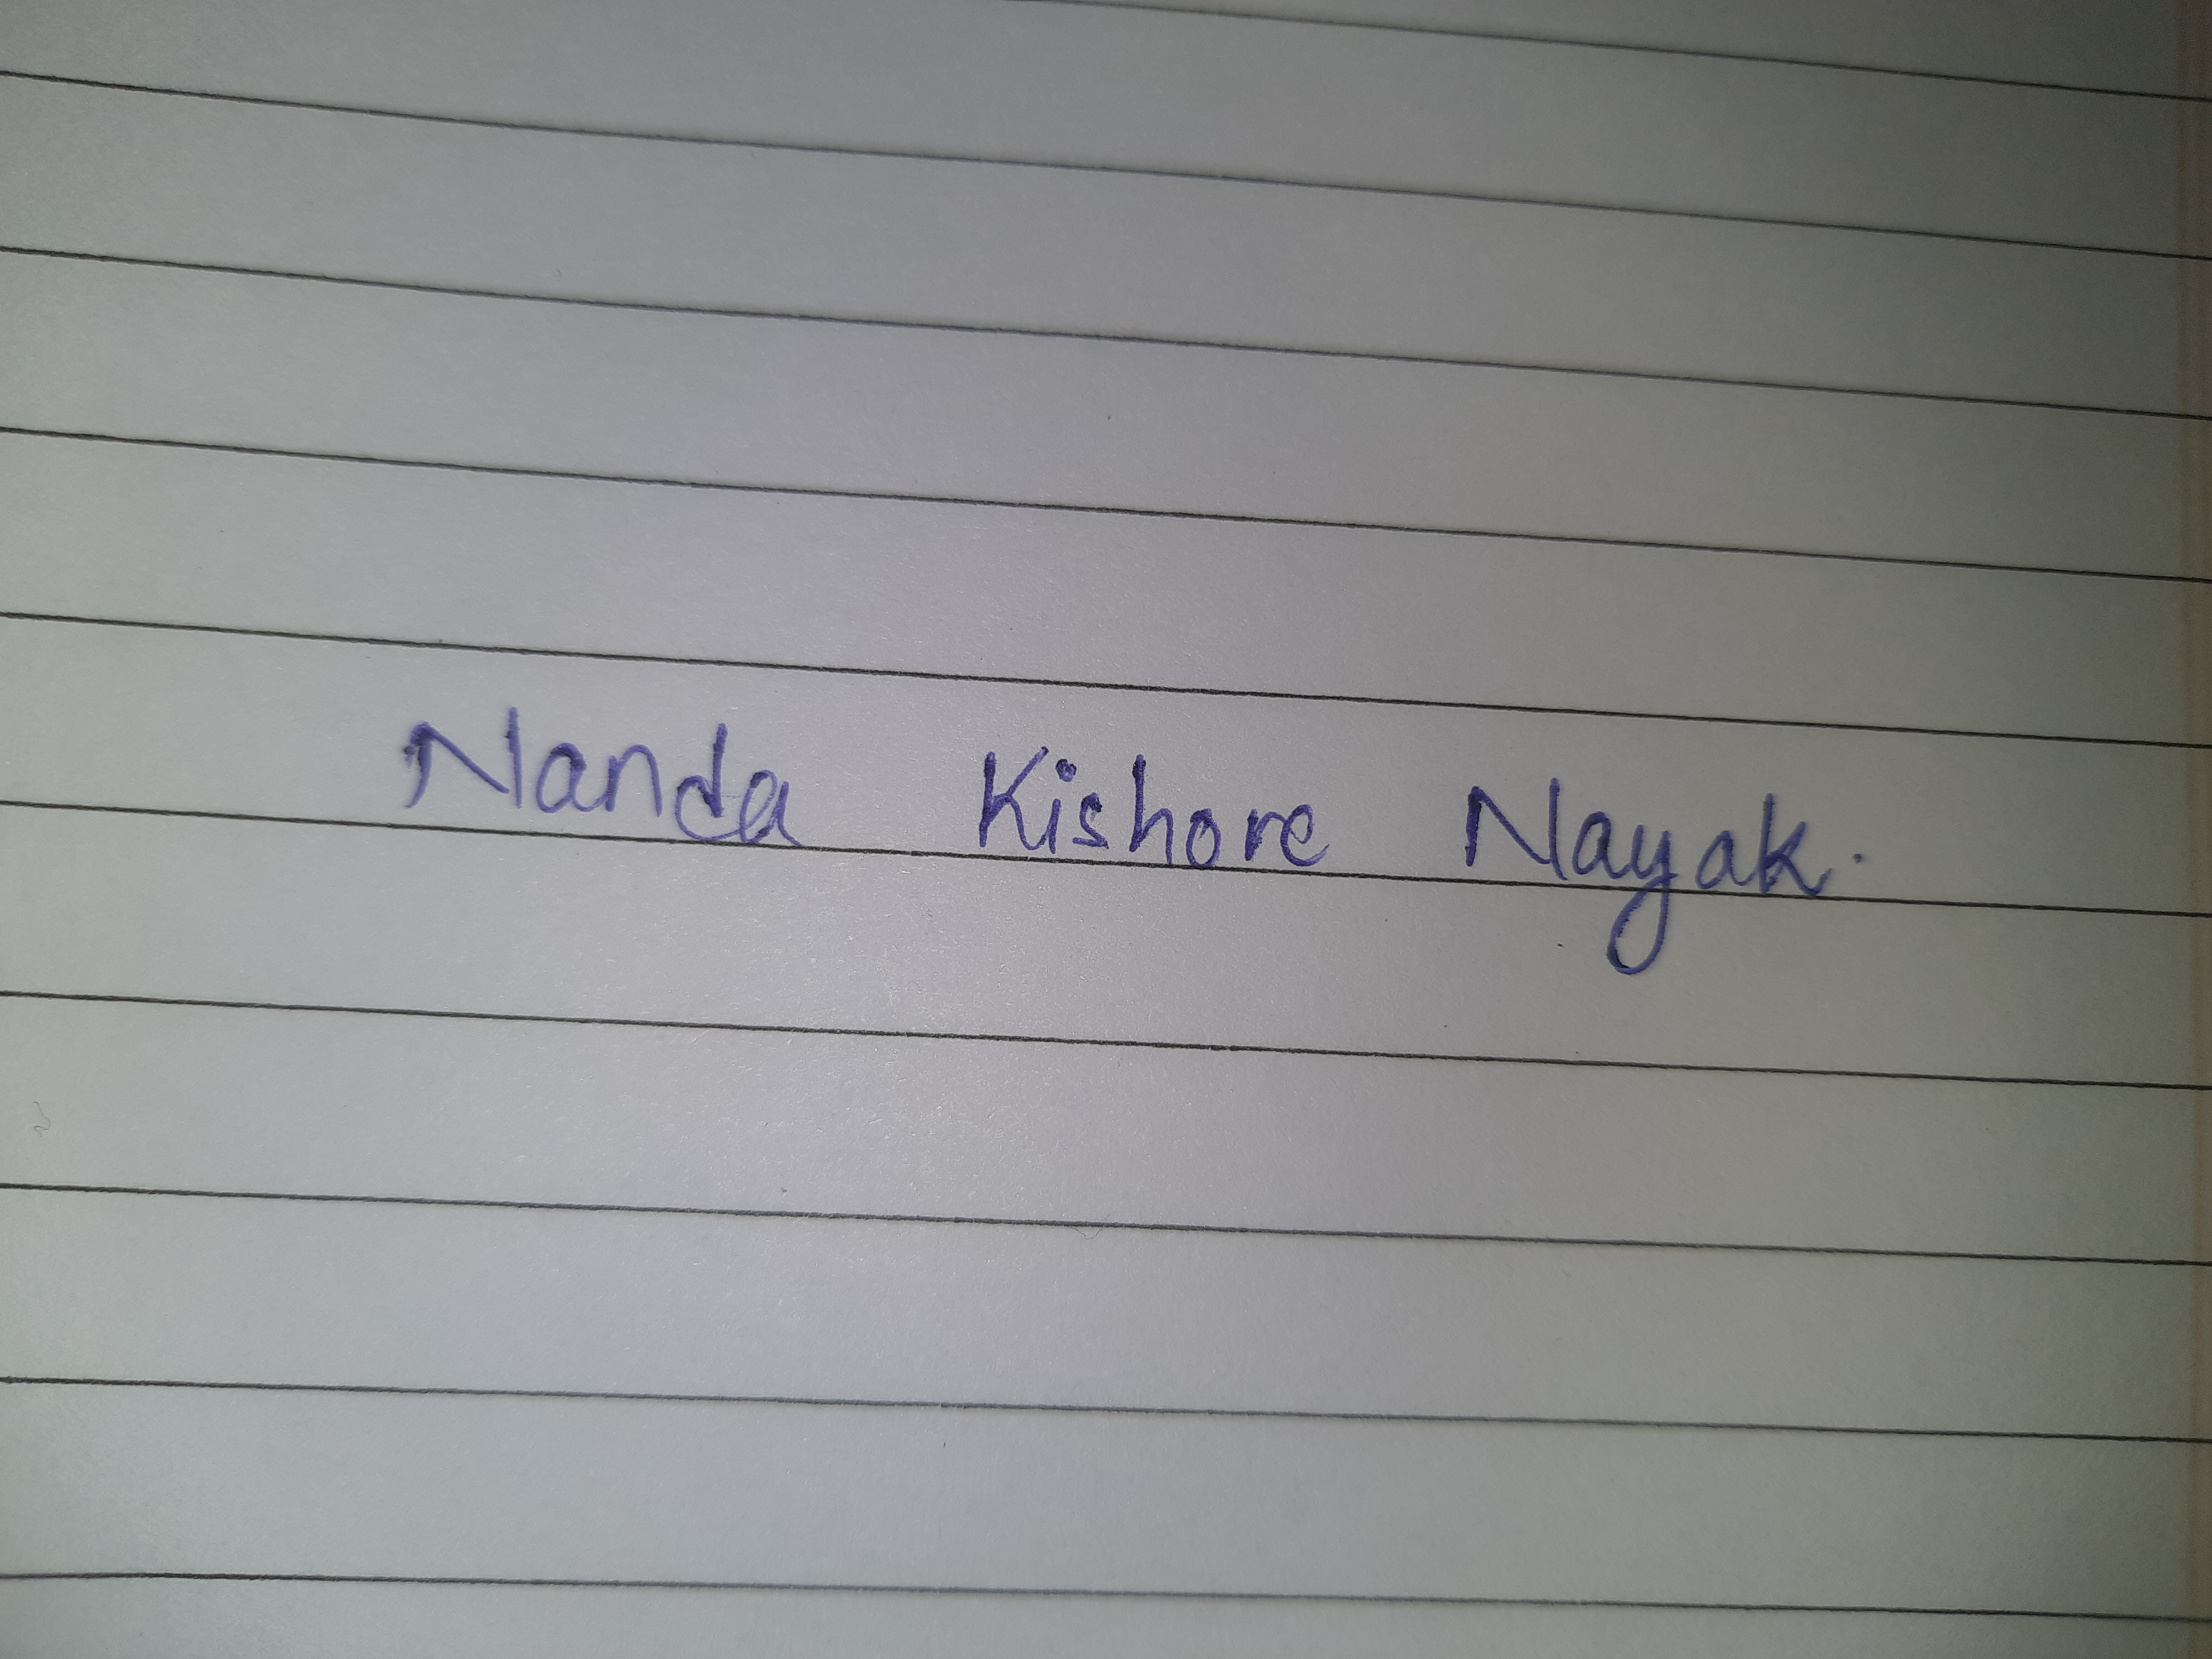 Nanda Kishore Nayak.